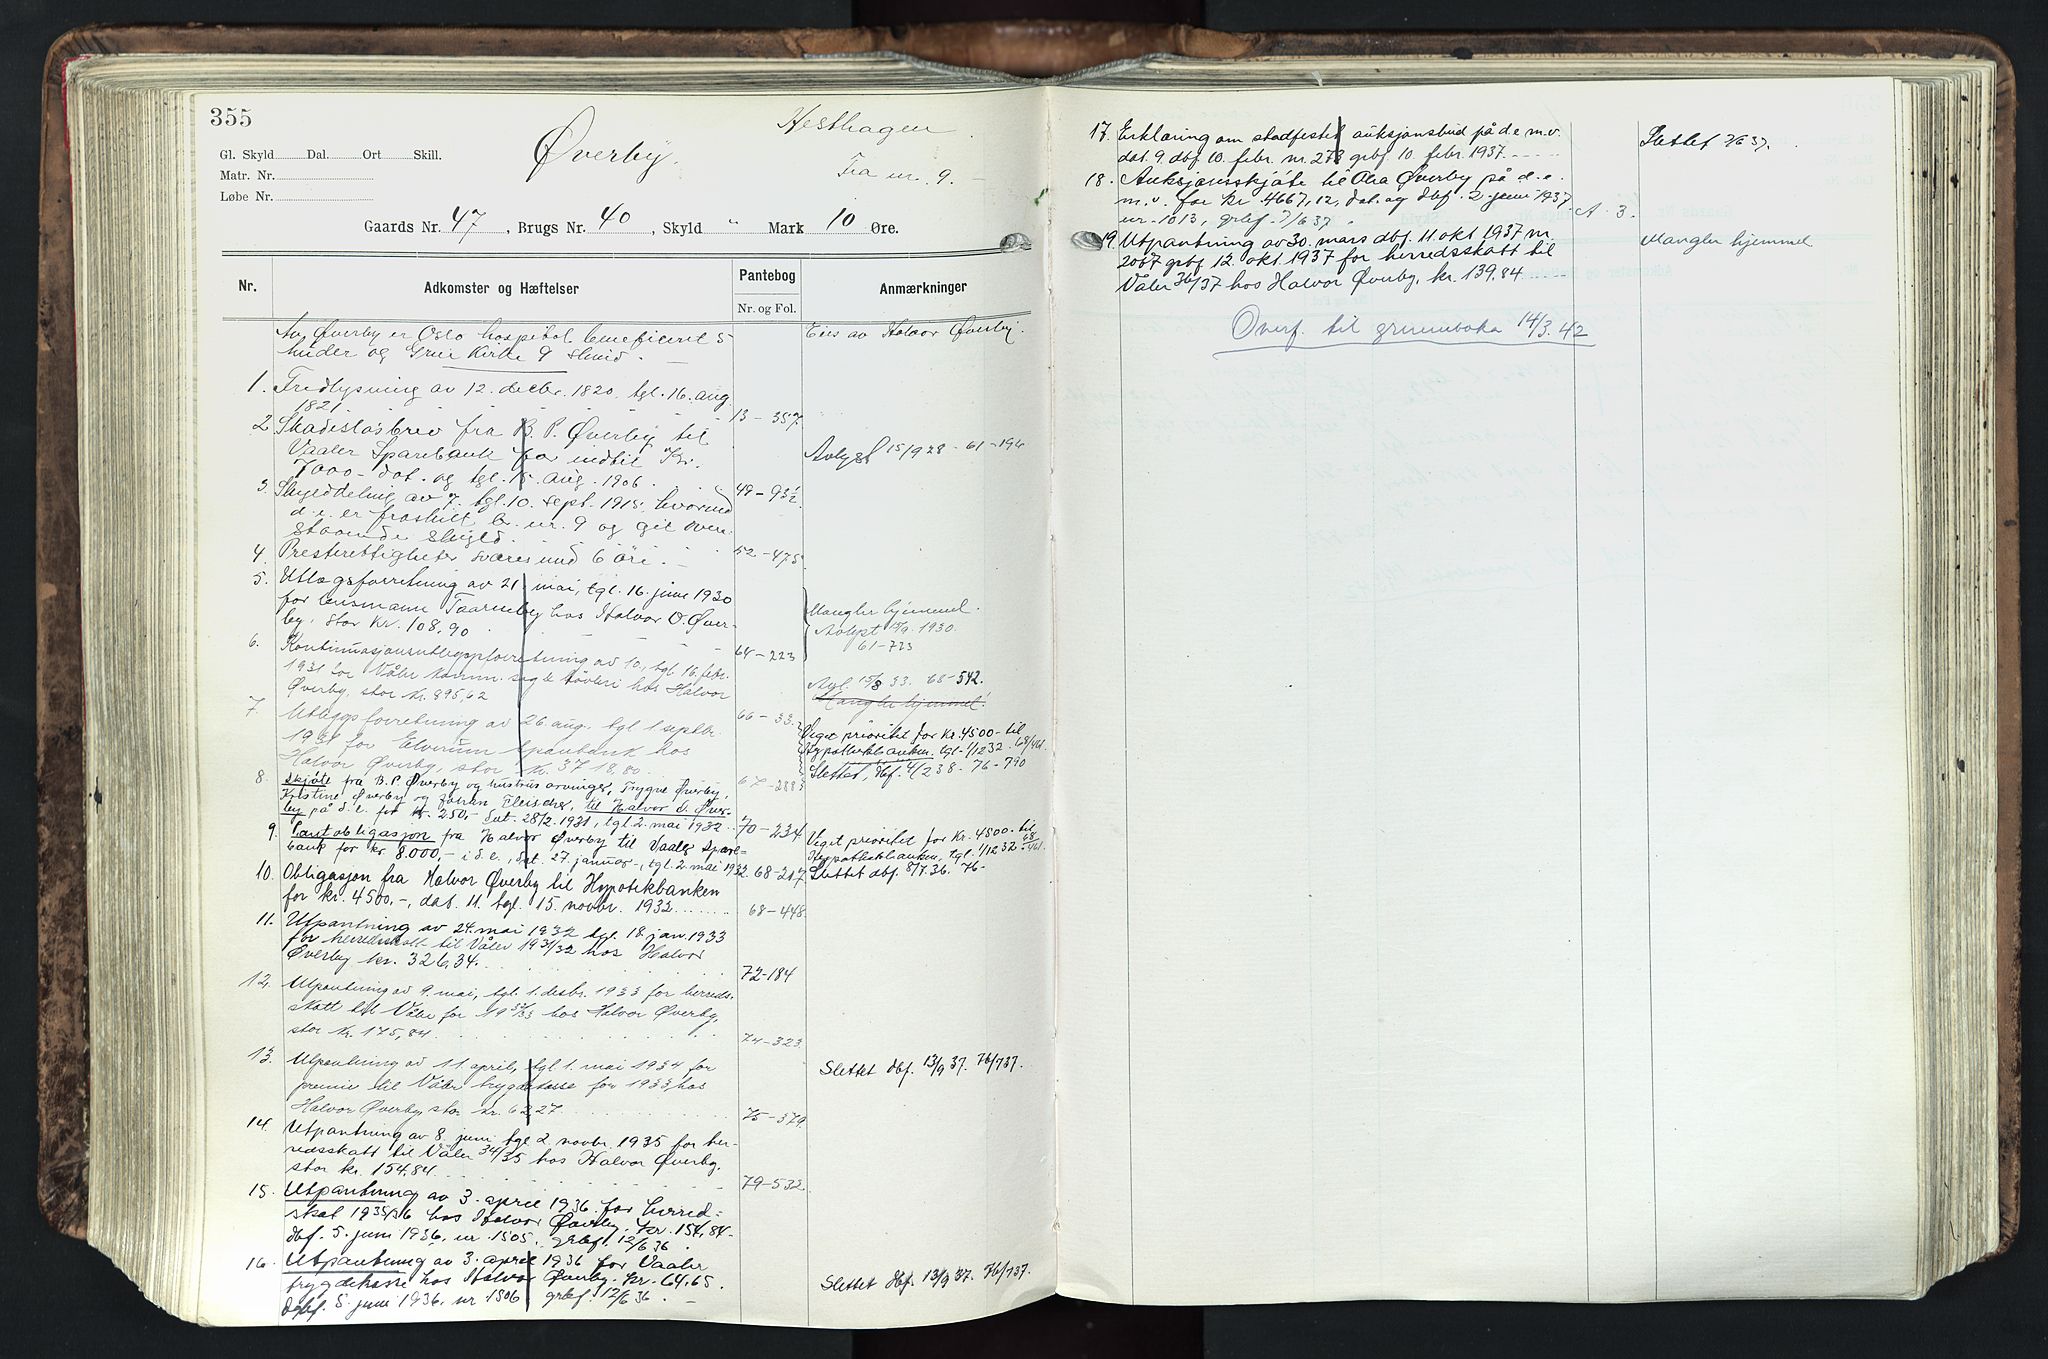 355
Hesthagen.
Gl. Skyld Dal. Ort Skill.
Øverby.
Matr. Nr.
Fra nr. 9. –
Løbe Nr.
Gaards Nr. 47, Brugs Nr. 40, Skyld " Mark 10 Øre.
Nr. Adkomster og Hæftelser Pantebog Anmærkninger
Nr. og Fol.
Av Øverby er Oslo hospital beneficeret 5
huder og Grue Kirke 9 skind. –
Eies av Halvor Øverby.
1. Fredlysning av 12. decbr. 1820. tgl. 16. aug.
1821 13 – 357.
2. Skadesløsbrev fra B. P. Øverby til
Vaaler Sparebank for indtil Kr.
7000 – dat. og tgl. 15. aug. 1906. 49 – 93½
Avlyst 15/9 28 – 61 – 196
3. Skylddeling av 7. tgl. 10. sept. 1915, hvorved
d. e. er fraskilt br. nr. 9 og git oven-
staaende skyld. 52 – 475
4. Presterettigheter svares med 6 øre. –
5. Utlægsforretning av 21. mai, tgl. 16. juni 1930
for lensmann Taarneby hos Halvor O. Øver-
by, stor kr. 108,90 64 – 223
Mangler hjemmel.
Avlyst 15/9. 1930.
61 – 723
6. av 10., tgl. 16. febr.
1931 for Våler hos Halvor
Øverby, stor kr. 895,62 66 – 33.
Avl. 15/8 33. 68 – 542.
Mangler hjemmel!
7. Utleggsforretning av 26 aug. tgl 1 septbr.
1931 for Elverum Sparebank hos
Halvor Øverby, stor kr. 3718,80. 67 – 288
Veget prioritet for kr. 4500 – til
Hypotekbanken. tgl. 1/12 32. 68/461
Slettet, dbf. 4/2 38 – 76 – 790
8. Skjøte fra B. P. Øverby og hustrus arvinger, Trygve Øverby,
Kristine Øverby og Fleischer, til Halvor O. Øver-
by på d. e. for kr. 250,- dat. 28/2. 1931, tgl. 2. mai 1932. 70 – 234
9. Pantobligasjon fra Halvor Øverby til Vaaler Spare-
bank for kr. 8.000,- i d. e., dat. 27. januar -, tgl. 2. mai 1932. 68 – 217
Veget prioritet for kr. 4500 - til
Hypotekbanken, tgl. 1/12 32 – 68-461.
Slettet dbf. 8/7. 36. 76 –
10. Obligasjon fra Halvor Øverby til Hypotekbanken
for kr. 4500,-, dat. 11. tgl. 15. novbr. 1932 68 – 448.
11. Utpantning av 24. mai 1932 tgl. 18. jan. 1933
for herredsskatt til Våler 1931/32 hos Halvor
Øverby kr. 326,34. 72 – 184
12. Utpantning av 9. mai, tgl. 1. desbr. 1933 for herreds-
skatt til Våler for 1932/33 hos Halvor Øverby,
stor kr. 175,84. 74 – 323
13. Utpantning av 11. april, tgl. 1. mai 1934 for
premie til Våler trygdekasse for 1933 hos
Halvor Øverby, stor kr. 62,27 75 – 379.
Slettet dbf. 13/9 37. 76/737.
14. Utpantning av 8. juni tgl. 2. novbr. 1935 for her-
redsskatt til Våler 34/35 hos Halvor Øverby,
stor kr. 154,84. 79 – 532
15. Utpantning av 3. april 1936 for herred-
skat 1935/36 hos Halvor Øverby. Kr. 154,84 –
dbf. 5. juni 1936, nr. 1505. grbf. 12/6 36.
16. Utpantning av 3. april 1936 for Vaaler
trygdekasse hos Halvor Øverby. kr. 64,65.
dbf. 5. juni 1936, nr. 1506. grbf. 12/6 36. –
Slettet dbf. 13/9 37. 76/737.
17. Erklæring om stadfestet auksjonsbud på d. e. m. v.
dat. 9. dbf. 10. febr. nr. 278 grbf. 10. febr. 1937.
Slettet 7/6 37.
18. Auksjonsskjøte til Ola Øverby på d. e.
m. v. for kr. 4667,12, dat. og dbf. 2. juni 1937
nr. 1013, grbf. 7/6 37. A. 3.
19. Utpantning av 30. mars dbf. 11 okt 1937 nr.
2067 grbf 12. okt. 1937 for herredsskatt til
Våler 36/37 hos Halvor Øverby, kr. 139.84
Mangler hjemmel
Overf. til grunnboka 14/3. 42